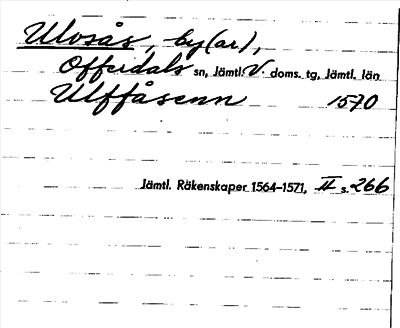 Ulvsås, by(ar),
Offerdals sn, Jämtl. V. doms. tg, Jämtl. län
Ulffåsenn 1570
Jämtl. Räkenskaper 1564–1571, II s. 266